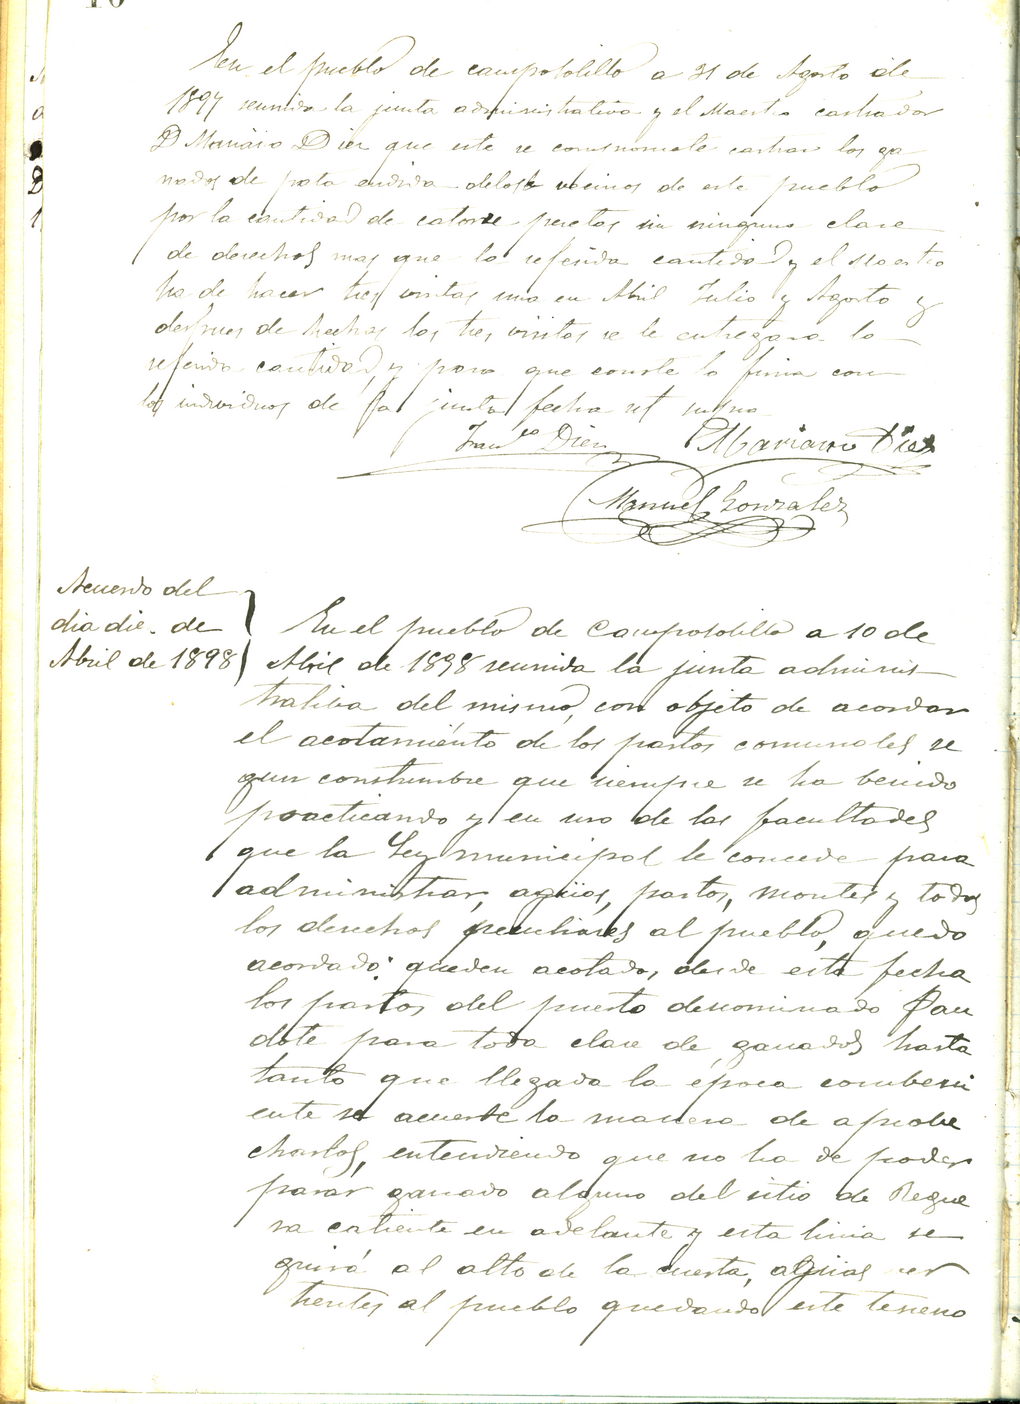 En el pueblo de camposolillo a 31 de Agosto de
1897 reunida la junta administrativa y el Maestro castrador
D Mariano Diez que este se compromete castrar los ga
nados de pata endida delos vecinos de este pueblo
por la cantidad de catorze pesetas sin ninguna clase
de derechos mas que la referida cantidad y el Maestro
ha de hacer tres visitas una en Abril Julio y Agosto y
despues de hechas las tres visitas se le entregara la
referida cantidad, y para que conste lo firma con
los individuos de la junta fecha ut supra
Fran.co Diez Mariano Diez
Manuel Gonzalez
Acuerdo del
dia die. de
Abril de 1898
En el pueblo de Camposolillo a 10 de
Abril de 1898 reunida la junta adminis
trativa del mismo, con objeto de acordar
el acotamiento de los pastos comunales se
gun constumbre que siempre se ha benido
practicando y en uso de las facultades
que la Ley municipal le concede para
administrar, aguas, pastos, montes y todos
los derechos peculiares al pueblo, quedo
acordado: queden acotados, desde esta fecha
los pastos del puerto denominado Pan
dote para toda clase de ganados hasta
tanto que llegada la epoca combeni
ente se acuerde la manera de aprobe
charlos, entendiendo que no ha de poder
pasar ganado alguno del sitio de Regue
ra caliente en adelante y esta linia se
guirá al alto de la cuesta, aguas ver
tientes al pueblo quedando este terreno